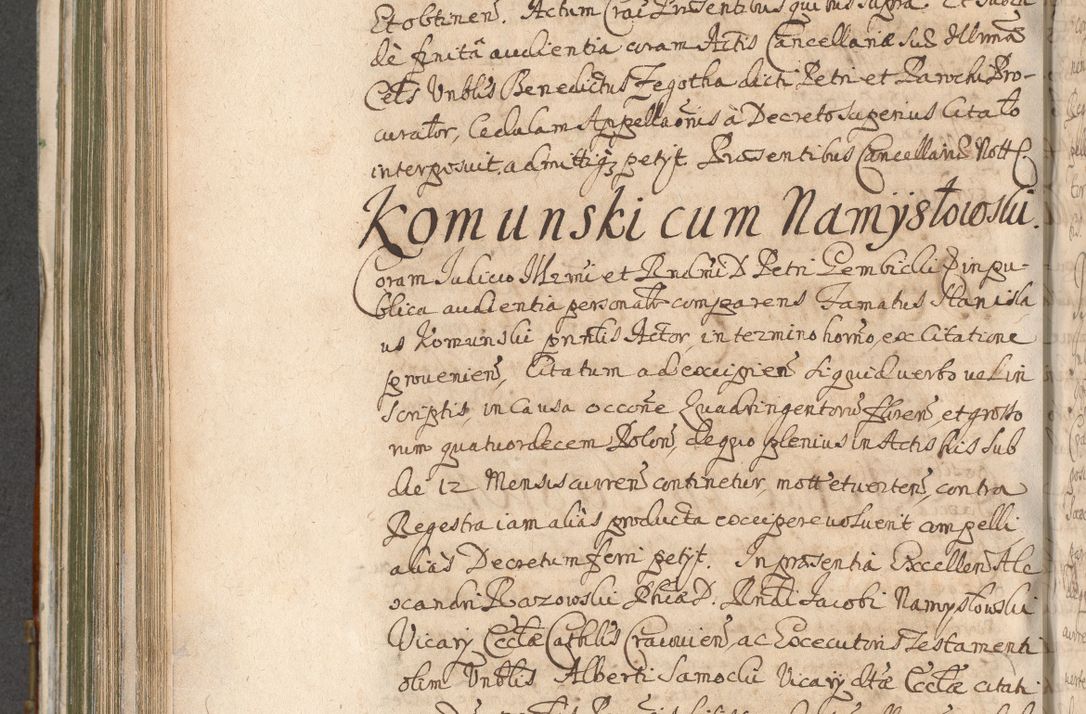 Et obtinen̄. Actum Crac̄ Præsentibus qui bus supra. Et
dè finitâ audientia coram Actis Cancellariæ suæ Illrmæ
Cels̄ Vnblis Benedictus Zegotha dicti Petri et Parochi Pro-
curator, Cedulam Appellaōnis à Decreto sugerius Citato
interposuit, admittiqȝ petijt Præsentibus Cancellariæ Nott C
Komunski cum Namysłowski.
Coram Judicio Illrmi et Rndmi D Petri Gembicki P in pu-
blica audientia personalr comparens Famatus Stanisla
us Komunski prntis Actor, in termino horno, ex Citatione
provenien̄, Citatum ad excipien̄ siquid verbo vel in
scriptis, in causa occōne Quadringentorū fluren̄, et grosso
rum quatuordecem Polon̄, de quo plenius in Actis his sub
die 12 Mensis curren̄ continetur, mott et verten̄, contra
Regestra iam aliàs producta excipere voluerit compelli
aliàs Decretum ferri petijt. In præsentia Excellen̄ Ale
xandri Razowski Phiæ D. Rndi Jacobi Namysłowski
Vicarij Eccłæ Cathlis Cracovien̄, ac Executoris Testamenti
olim Vnblis Alberti Samocki Vicarij dtæ Eccłæ citati